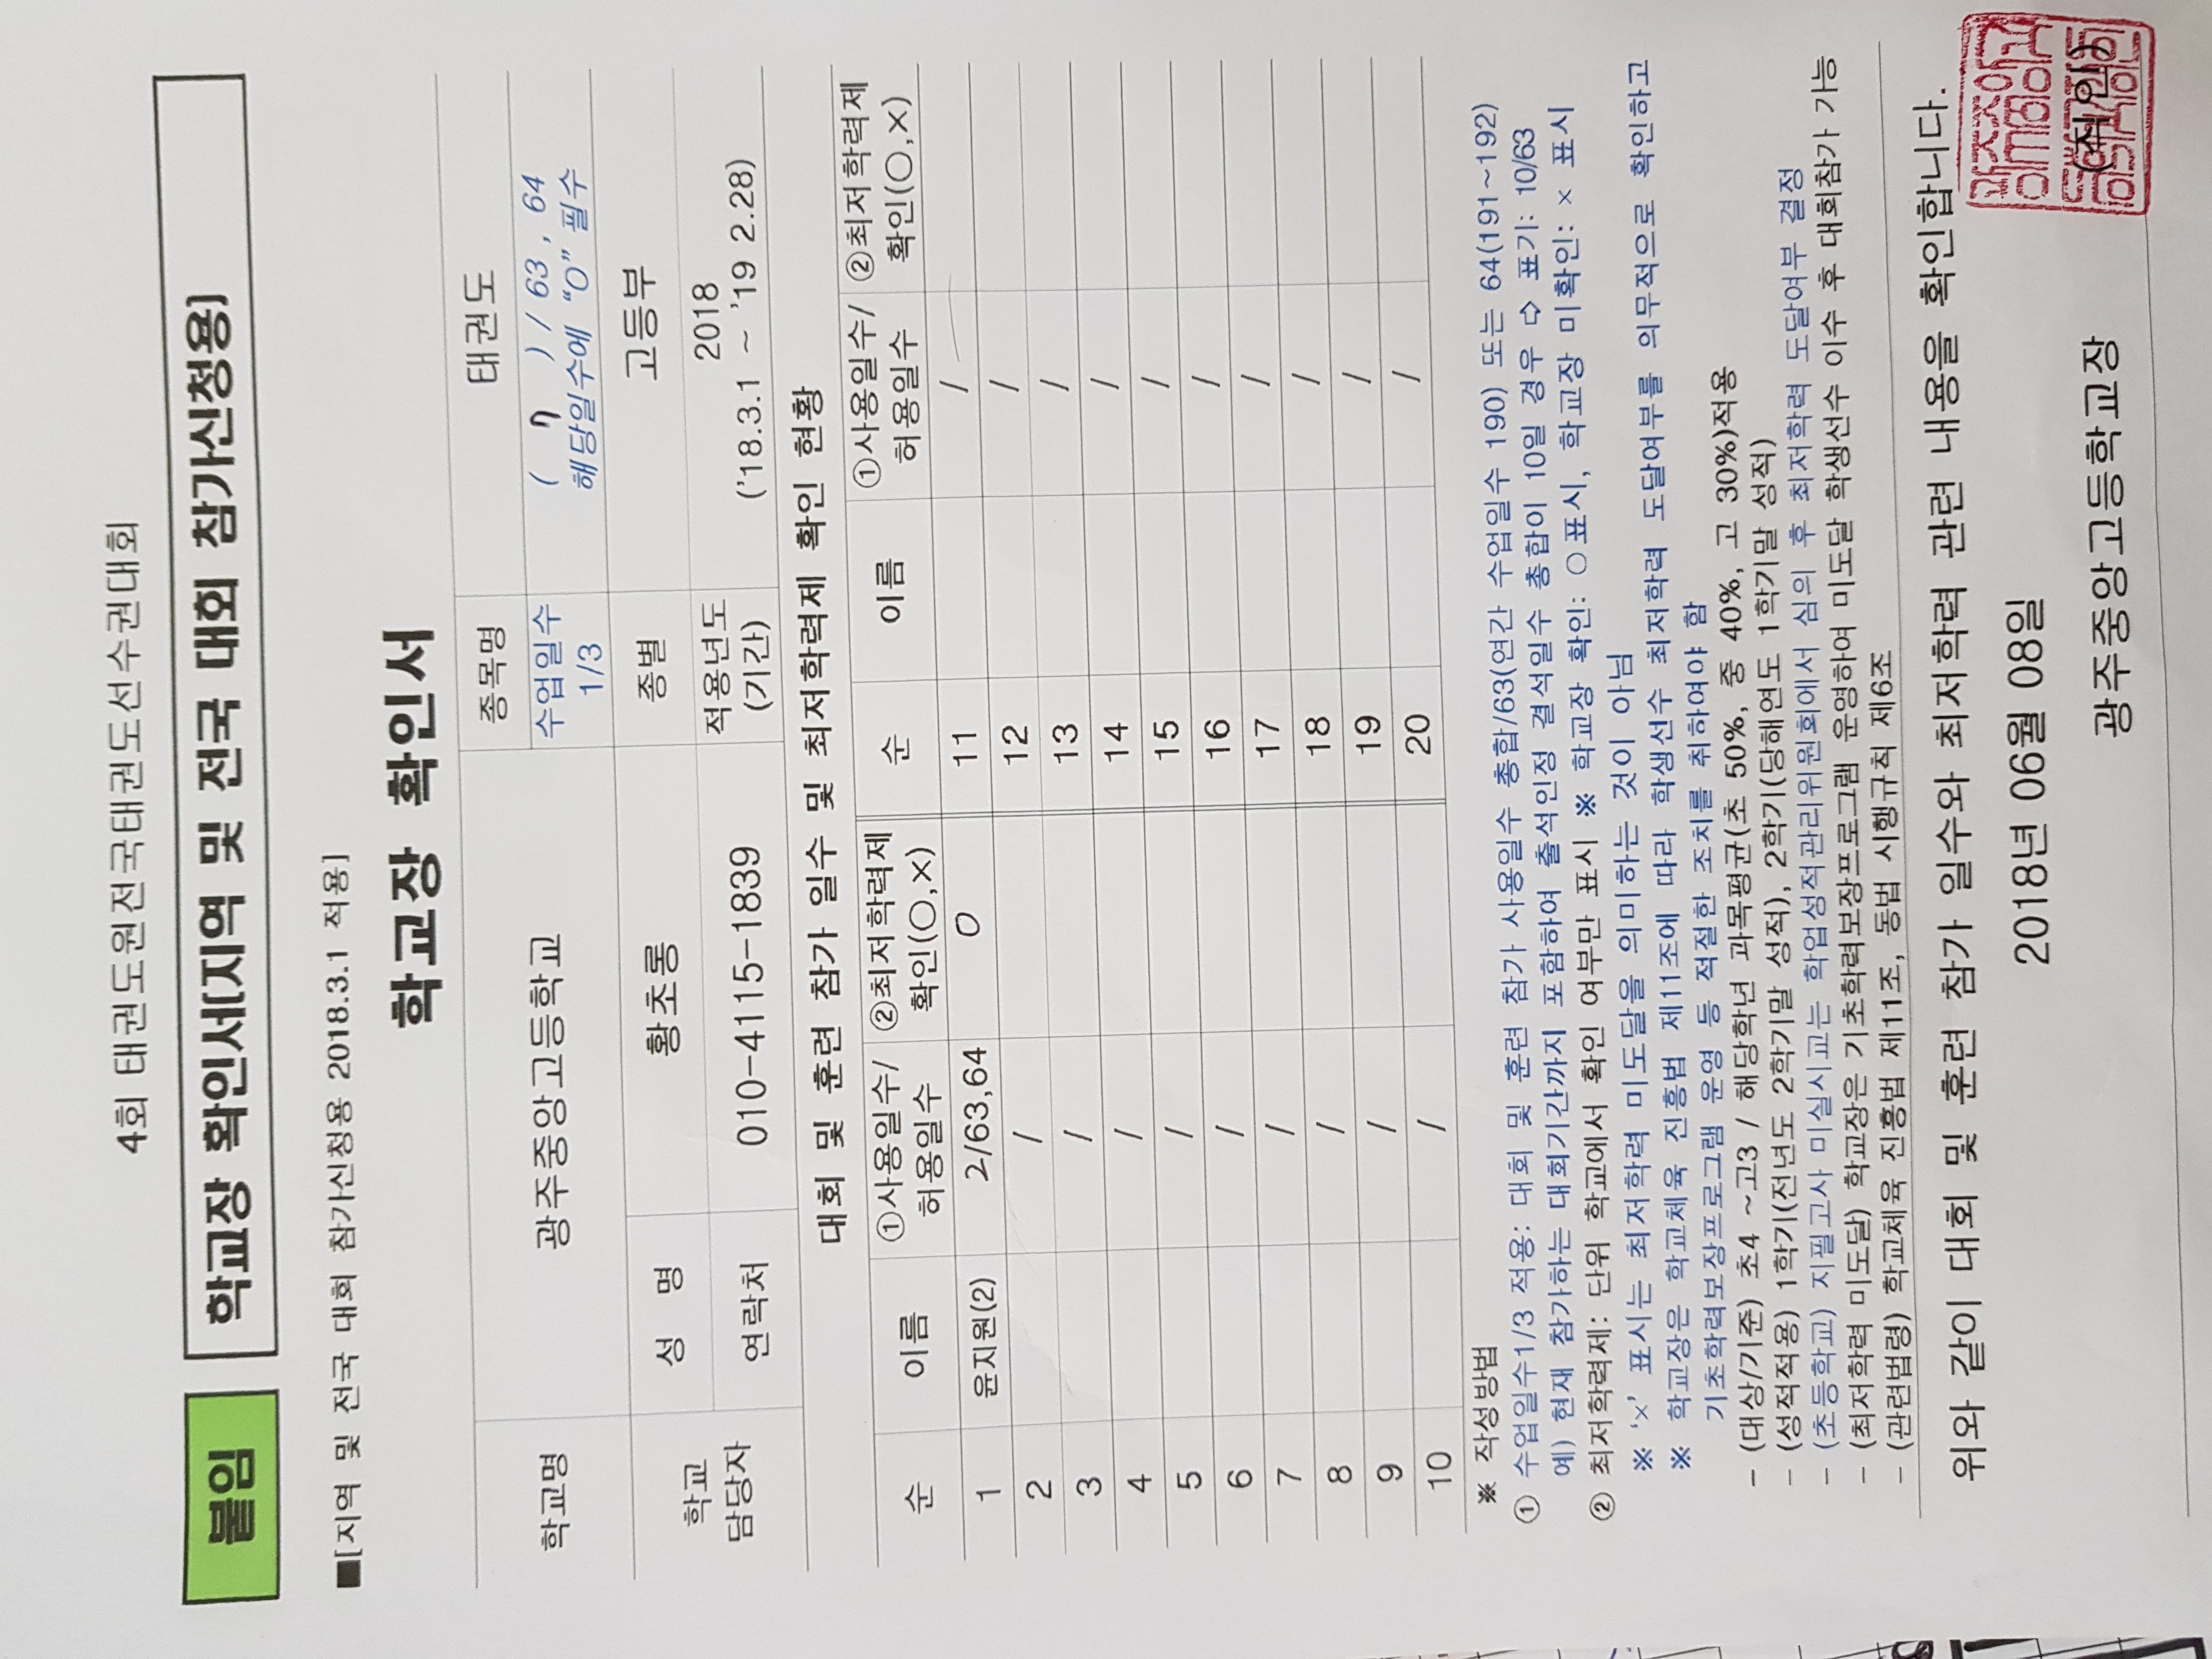 4회 태권도원전국태권도선수권대회
붙임
학교장 확인서[지역 및 전국 대회 참가신청용]
■[지역 및 전국 대회 참가신청용 2018.3.1 적용]
학교장 확인서
학교명 광주중앙고등학교 종목명 태권도
수업일수 1/3 ( 7 ) / 63 , 64
해당일수에 “O” 필수
학교 담당자 성 명 황초롱 종별 고등부
연락처 010-4115-1839 적용년도 (기간) 2018
('18.3.1 ~ '19 2.28)
대회 및 훈련 참가 일수 및 최저학력제 확인 현황
순 이름 ①사용일수/허용일수 ②최저학력제 확인(○,×) 순 이름 ①사용일수/허용일수 ②최저학력제 확인(○,×)
1 윤지원(2) 2/63,64 O 11 /
2 / 12 /
3 / 13 /
4 / 14 /
5 / 15 /
6 / 16 /
7 / 17 /
8 / 18 /
9 / 19 /
10 / 20 /
※ 작성방법
① 수업일수1/3 적용: 대회 및 훈련 참가 사용일수 총합/63(연간 수업일수 190) 또는 64(191~192)
예) 현재 참가하는 대회기간까지 포함하여 출석인정 결석일수 총합이 10일 경우 ⇨ 표기: 10/63
② 최저학력제: 단위 학교에서 확인 여부만 표시 ※ 학교장 확인: ○ 표시, 학교장 미확인: × 표시
※ '×' 표시는 최저학력 미도달을 의미하는 것이 아님
※ 학교장은 학교체육 진흥법 제11조에 따라 학생선수 최저학력 도달여부를 의무적으로 확인하고
기초학력보장프로그램 운영 등 적절한 조치를 취하여야 함
- (대상/기준) 초4 ~고3 / 해당학년 과목평균(초 50%, 중 40%, 고 30%)적용
- (성적적용) 1학기(전년도 2학기말 성적), 2학기(당해연도 1학기말 성적)
- (초등학교) 지필고사 미실시교는 학업성적관리위원회에서 심의 후 최저학력 도달여부 결정
- (최저학력 미도달) 학교장은 기초학력보장프로그램 운영하여 미도달 학생선수 이수 후 대회참가 가능
- (관련법령) 학교체육 진흥법 제11조, 동법 시행규칙 제6조
위와 같이 대회 및 훈련 참가 일수와 최저학력 관련 내용을 확인합니다.
2018년 06월 08일
광주중앙고등학교장 (직인)